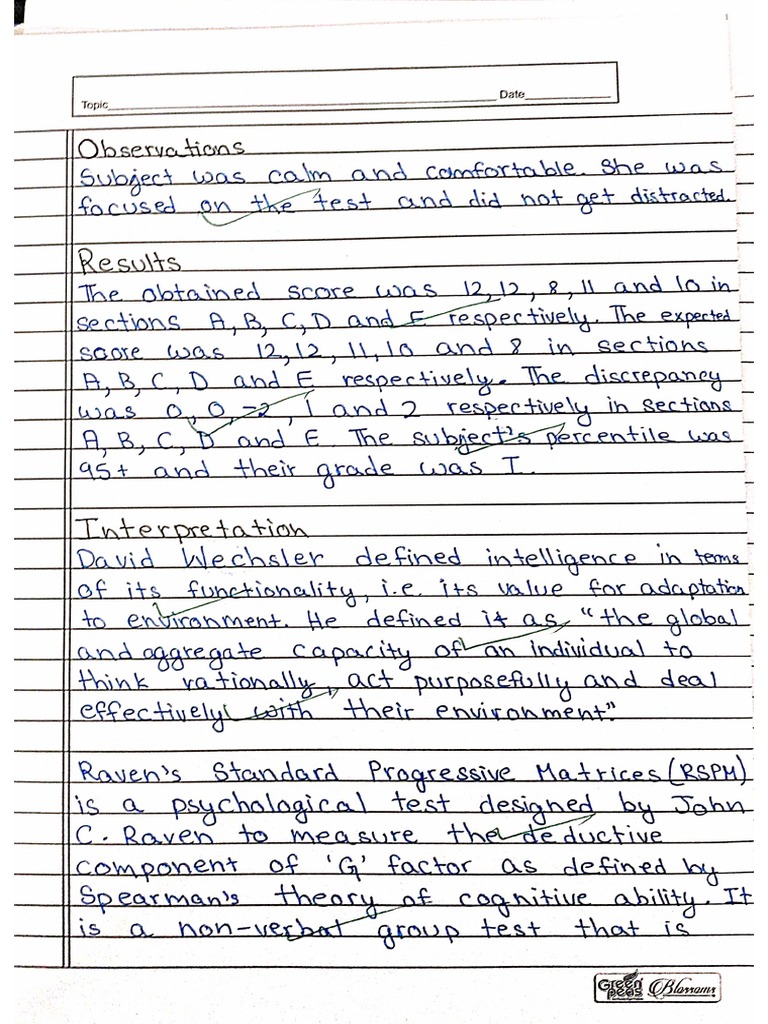 Topic Date
Observations
Subject was calm and comfortable. She was
focused on the test and did not get distracted.
Results
The obtained score was 12,12, 8, 11 and 10 in
sections A, B, C, D and E respectively. The expected
score was 12, 12, 11, 10 and 8 in sections
A, B, C, D and E respectively. The discrepancy
was 0, 0, -2, 1 and 2 respectively in sections
A, B, C, D and E. The subject's percentile was
95+ and their grade was I.
Interpretation
David Wechsler defined intelligence in terms
of its functionality, i.e. its value for adaptation
to environment. He defined it as "the global
and aggregate capacity of an individual to
think rationally, act purposefully and deal
effectively with their environment".
Raven's Standard Progressive Matrices (RSPM)
is a psychological test designed by John
C. Raven to measure the deductive
component of 'G' factor as defined by
Spearman's theory of cognitive ability. It
is a non-verbal group test that is
Green Peas Blossoms